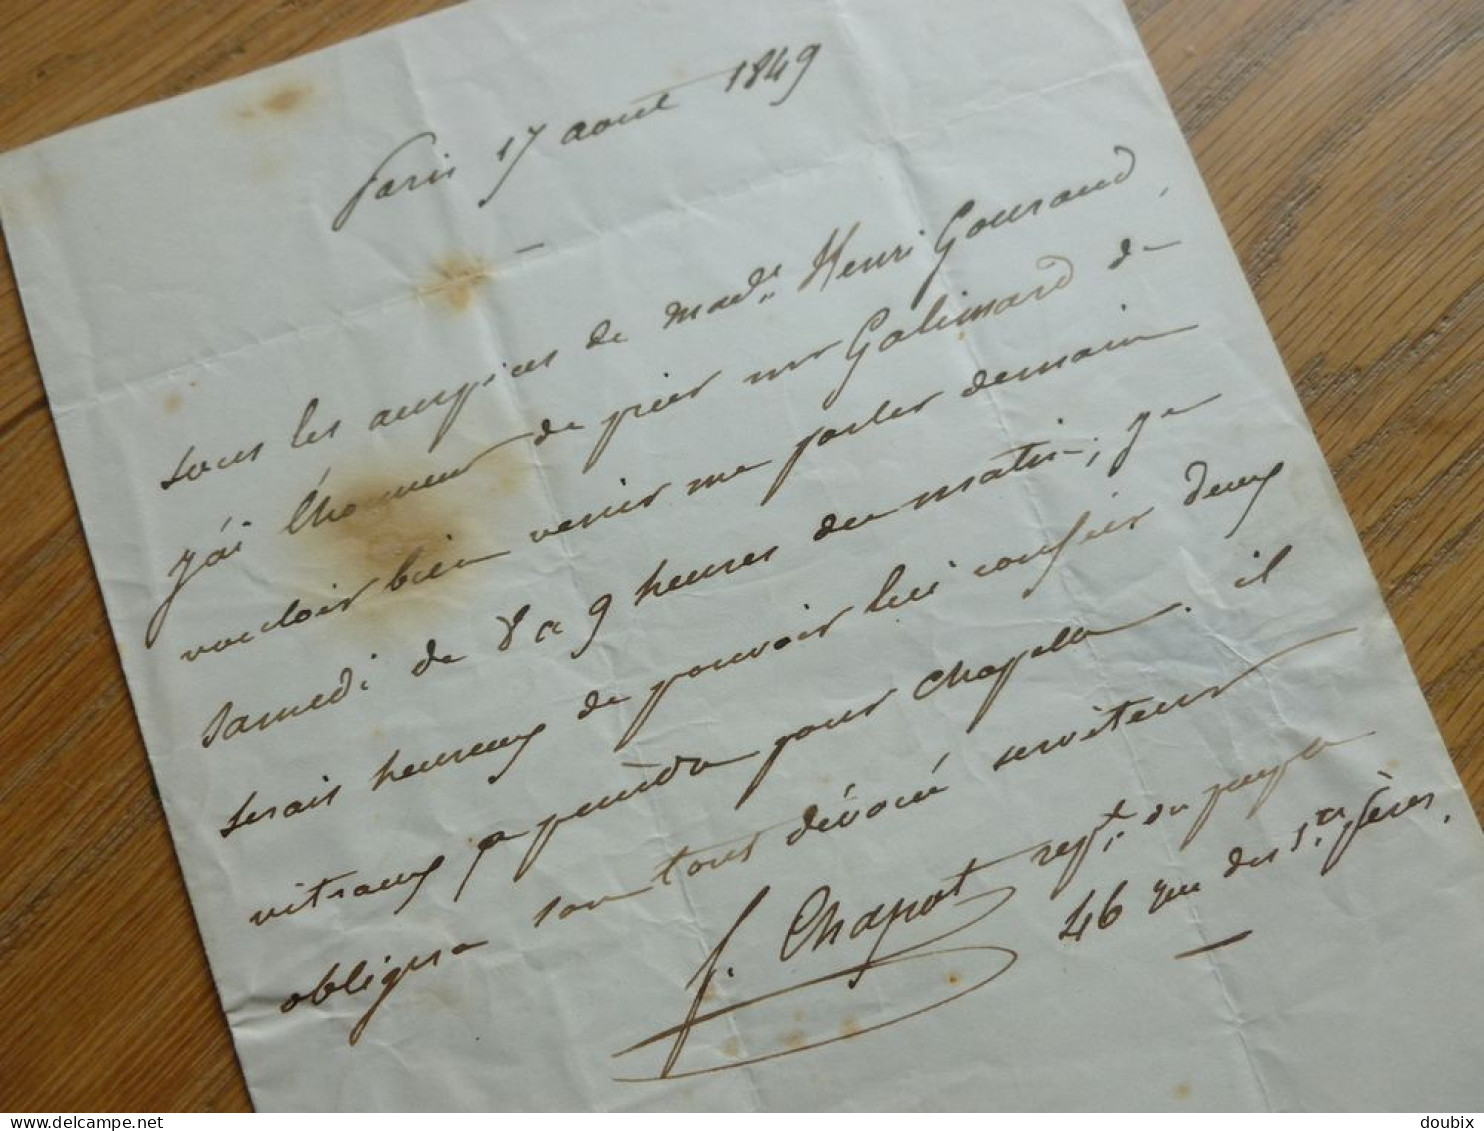 Paris 17 aout 1849
sous les auspices de mad.e Henri Gouraud,
j'ai l'honneur de prier mr Galimard de
vouloir bien venir me parler demain
samedi de 8 a 9 heures du matin, je
serais heureux de pouvoir lui confier deux
vitraux a peindre pour chapelle. il
obligera son tout dévoué serviteur
f. Chapot rept. du peuple
46 rue des Sts pères.
www.delcampe.net
doubix